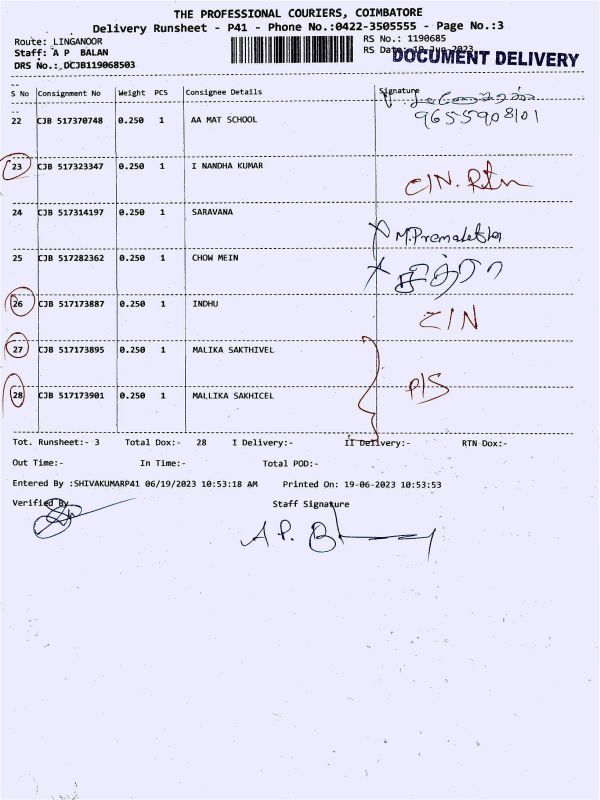 THE PROFESSIONAL COURIERS, COIMBATORE
Delivery Runsheet - P41 - Phone No.:0422-3505555 - Page No.:3
Route: LINGANOOR RS No.: 1190685
Staff: A P BALAN RS Date: 19 Jun 2023
DOCUMENT DELIVERY
DRS No.: DCJB119068503
S No Consignment No Weight PCS Consignee Details Signature
22 CJB 517370748 0.250 1 AA MAT SCHOOL
9655908101
23 CJB 517323347 0.250 1 I NANDHA KUMAR C/N. Rtn
24 CJB 517314197 0.250 1 SARAVANA
25 CJB 517282362 0.250 1 CHOW MEIN சித்ரா
26 CJB 517173887 0.250 1 INDHU C/N
27 CJB 517173895 0.250 1 MALIKA SAKTHIVEL
28 CJB 517173901 0.250 1 MALLIKA SAKHICEL P/S
Tot. Runsheet:- 3 Total Dox:- 28 I Delivery:- II Delivery:- RTN Dox:-
Out Time:- In Time:- Total POD:-
Entered By :SHIVAKUMARP41 06/19/2023 10:53:18 AM Printed On: 19-06-2023 10:53:53
Verified By Staff Signature
A P. B